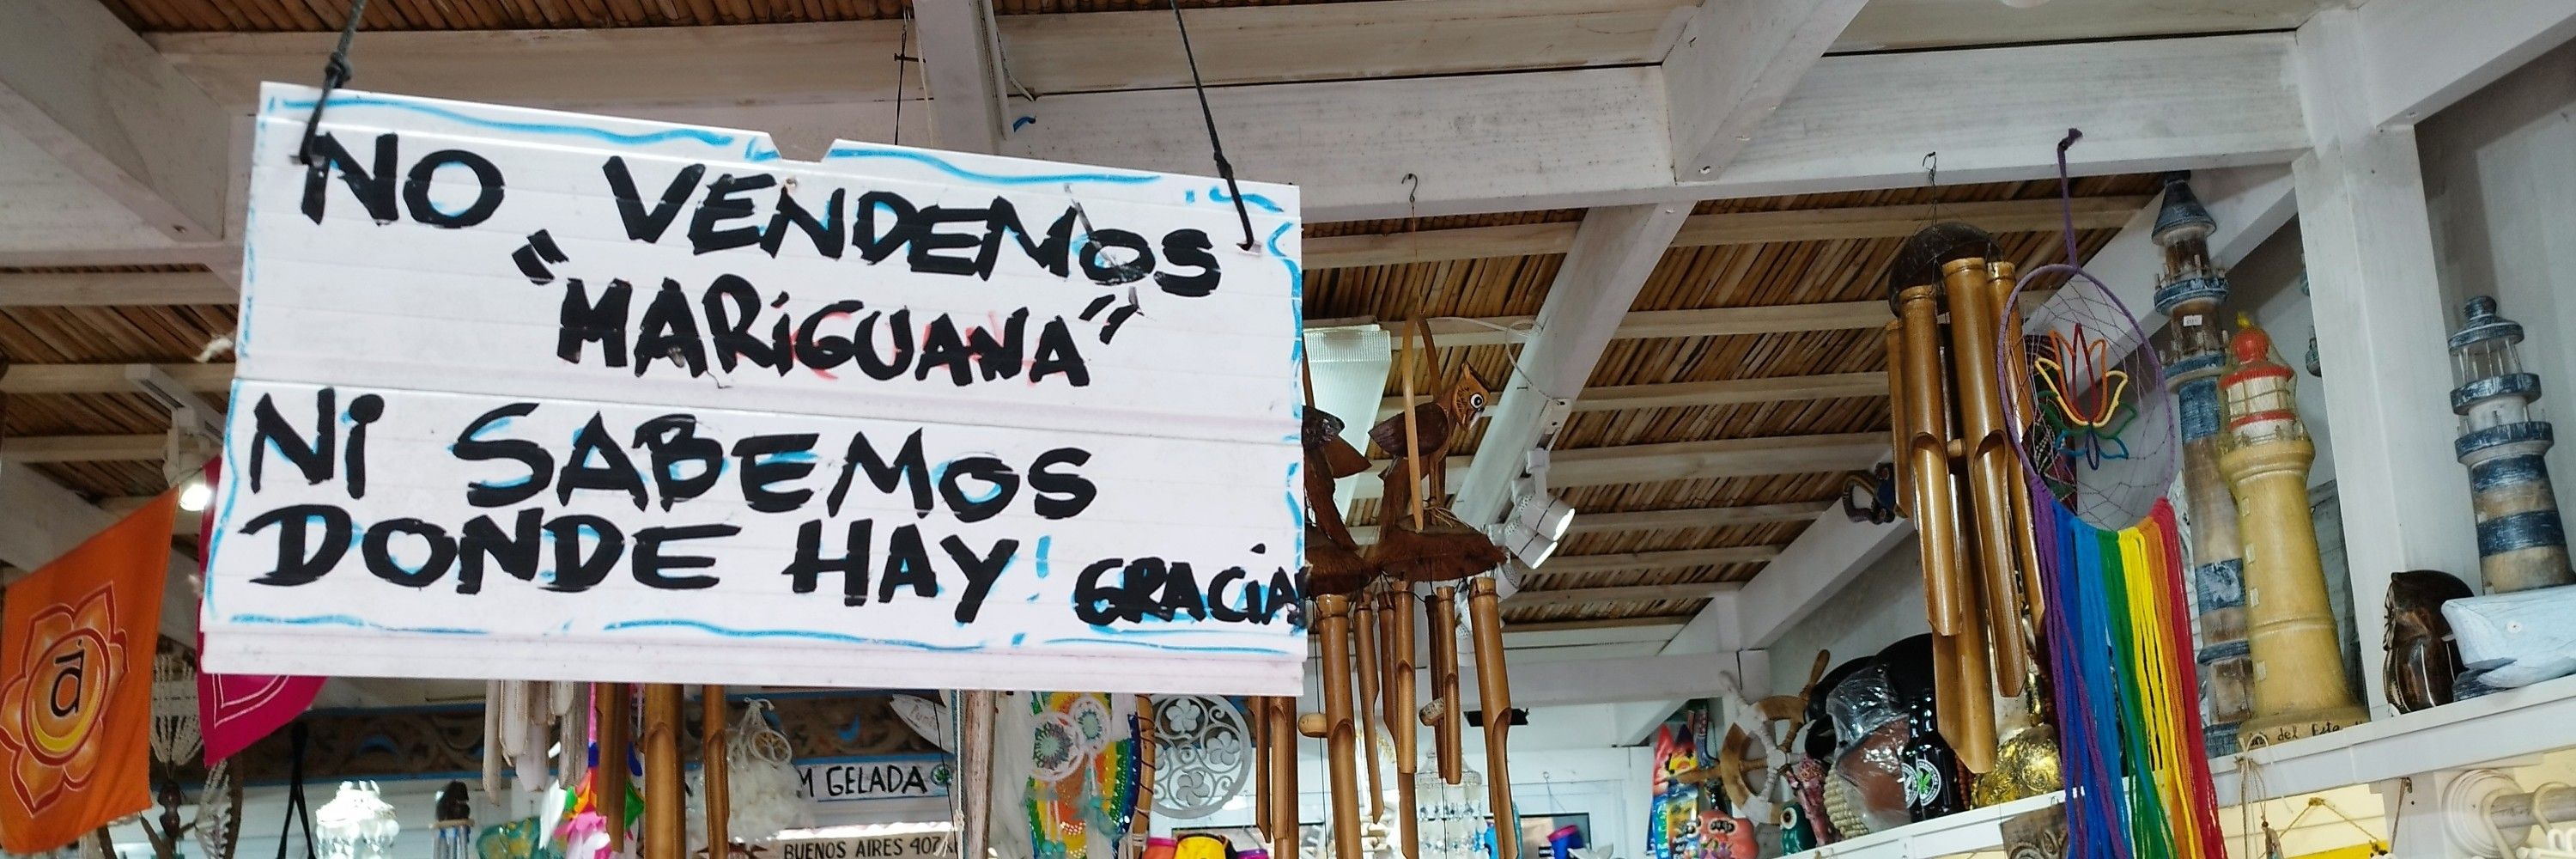 NO VENDEMOS
"MARiGUANA"
Ni SABEMOS
DONDE HAY! GRACIAS
M GELADA
BUENOS AIRES 407
del Este